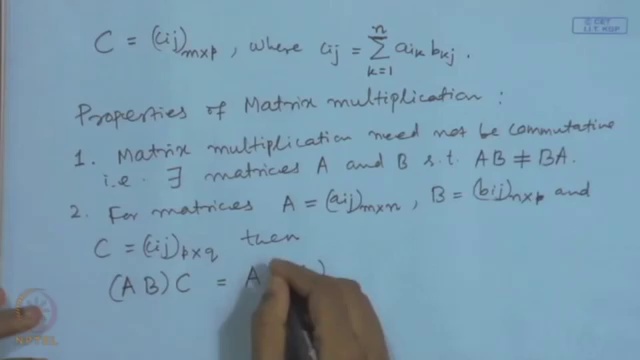 © CET
I.I.T. KGP
C = (cij)m×p, where cij = ∑ⁿₖ₌₁ aik bkj.
Properties of Matrix multiplication:
1. Matrix multiplication need not be commutative
i.e. ∃ matrices A and B s.t. AB ≠ BA.
2. For matrices A = (aij)m×n, B = (bij)n×p and
C = (cij)p×q then
(AB)C = A )
NPTEL